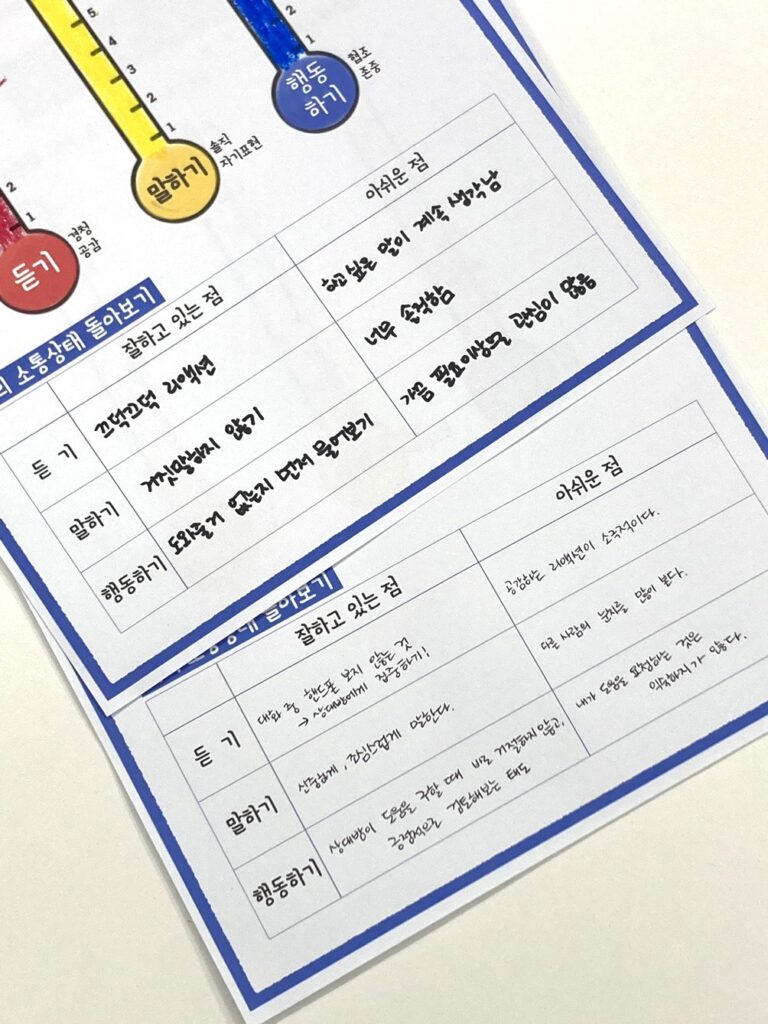 5
4
3
2
1
말하기
솔직
자기표현
2
1
행동
하기
협조
존중
2
1
듣기
경청
공감
의 소통상태 돌아보기
잘하고 있는 점
아쉬운 점
듣 기
끄덕끄덕 리액션
하고 싶은 말이 계속 생각남
말하기
거짓말하지 않기
너무 솔직함
행동하기
도와줄거 없는지 먼저 물어보기
가끔 필요이상으로 관심이 많음
돌아보기
잘하고 있는 점
아쉬운 점
듣 기
대화 중 핸드폰 보지 않는 것
→ 상대방에게 집중하기!
공감하는 리액션이 소극적이다.
말하기
신중하게, 조심스럽게 말한다.
다른 사람의 눈치를 많이 본다.
행동하기
상대방이 도움을 구할 때 바로 거절하지 않고,
긍정적으로 검토해보는 태도
내가 도움을 요청하는 것은
익숙하지가 않다.